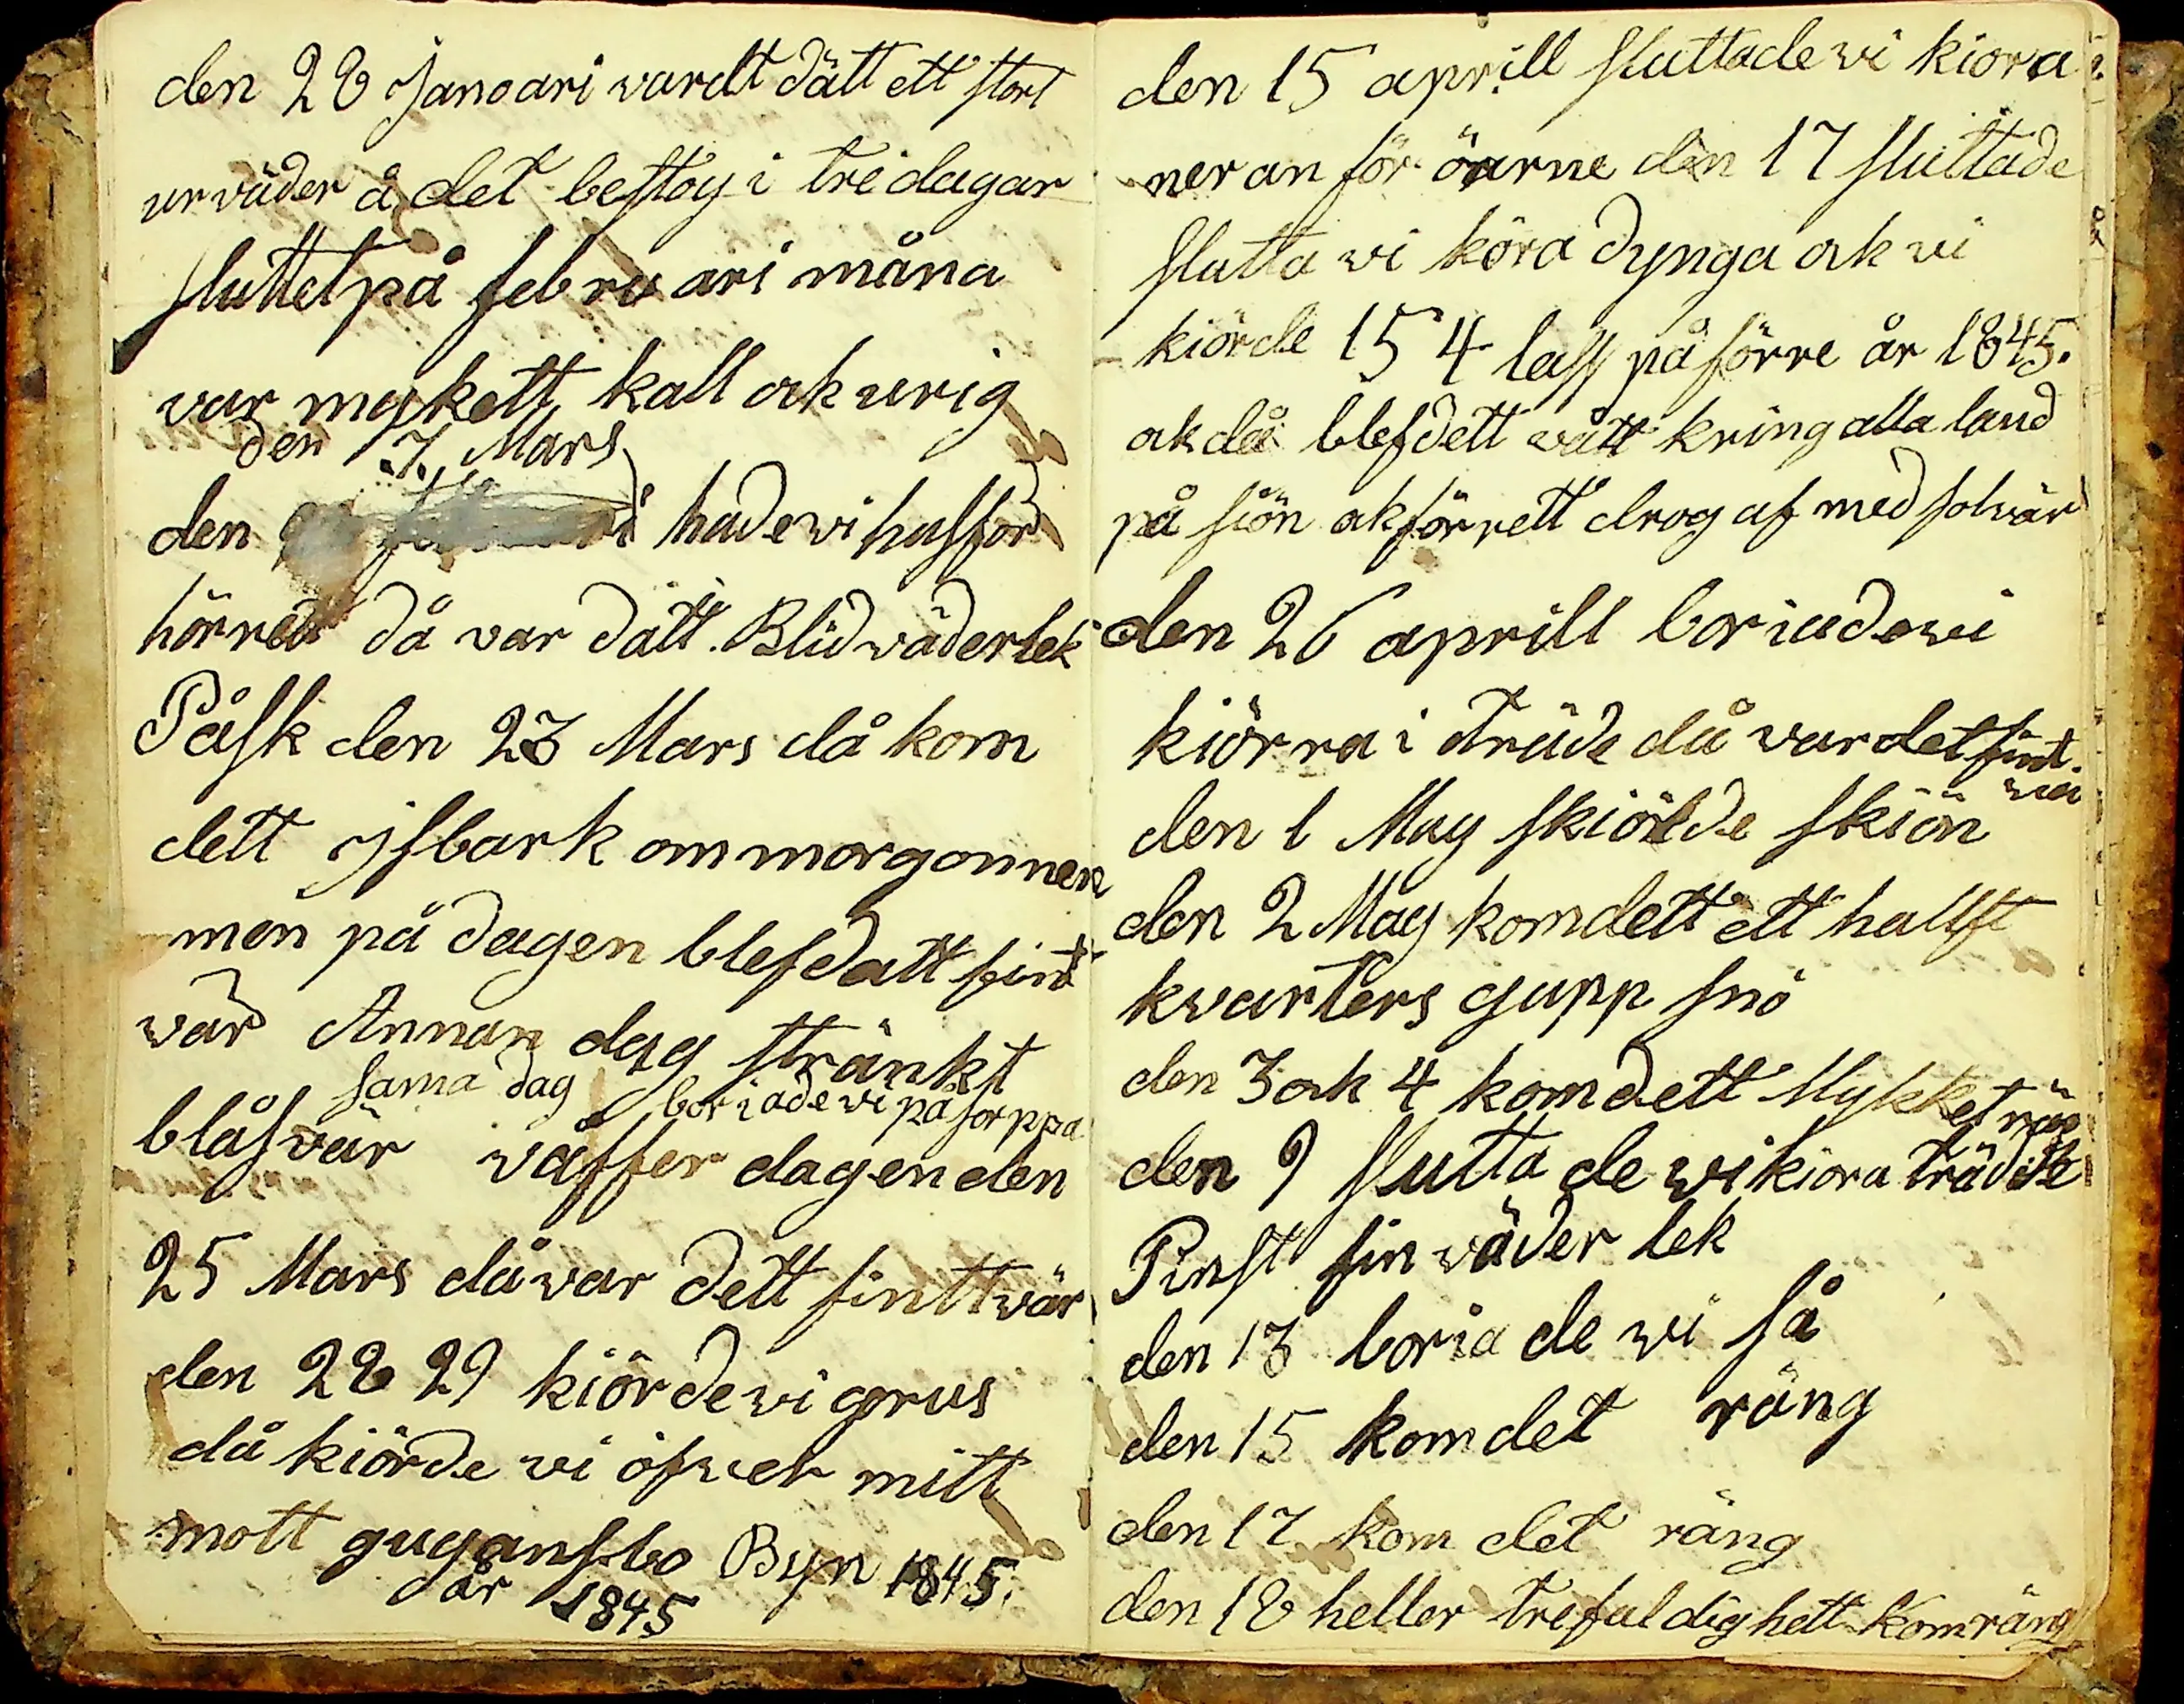 den 28 Janoari vardt dätt ett stort
urväder å det bestog i tre dagar
sluttet på februari måna
var mykett kall ok urig
den 7 Mars
den hade vi husför
hörrett då var dätt Blid väderlek
Påsk den 23 Mars då kom
dett isbark om morgonnen
men på dagen blef datt fint
vär Annan dag stränkt
sama dag boriade vi på sorppa
blåsvär våffer dagen den
25 Mars då var dett fintt vär
den 28 29 kiörde vi grus
då kiörde vi öfver mitt
mott gugansbo Byn 1845.
år 1845
den 15 aprill sluttade vi kiora
neran för öarne den 17 sluttade
slutta vi köra dynga ok vi
kiörde 154 lass på förre år 1845.
ok då blef dett vått kring alla land
på siön ok förrett drog af med solvär
den 26 aprill boriade vi
kiörra i träde då var det fint
vär
den 1 May skiölde skiön
den 2 May kom dett ett hallft
kvarters gupp snö
den 3 ok 4 kom dett Mykket
den 9 slutta de vi kiora träde
Pinst fin väder lek
den 13 boria de vi så
den 15 kom det räng
den 17 kom det räng
den 18 heller trefuldighett kom räng